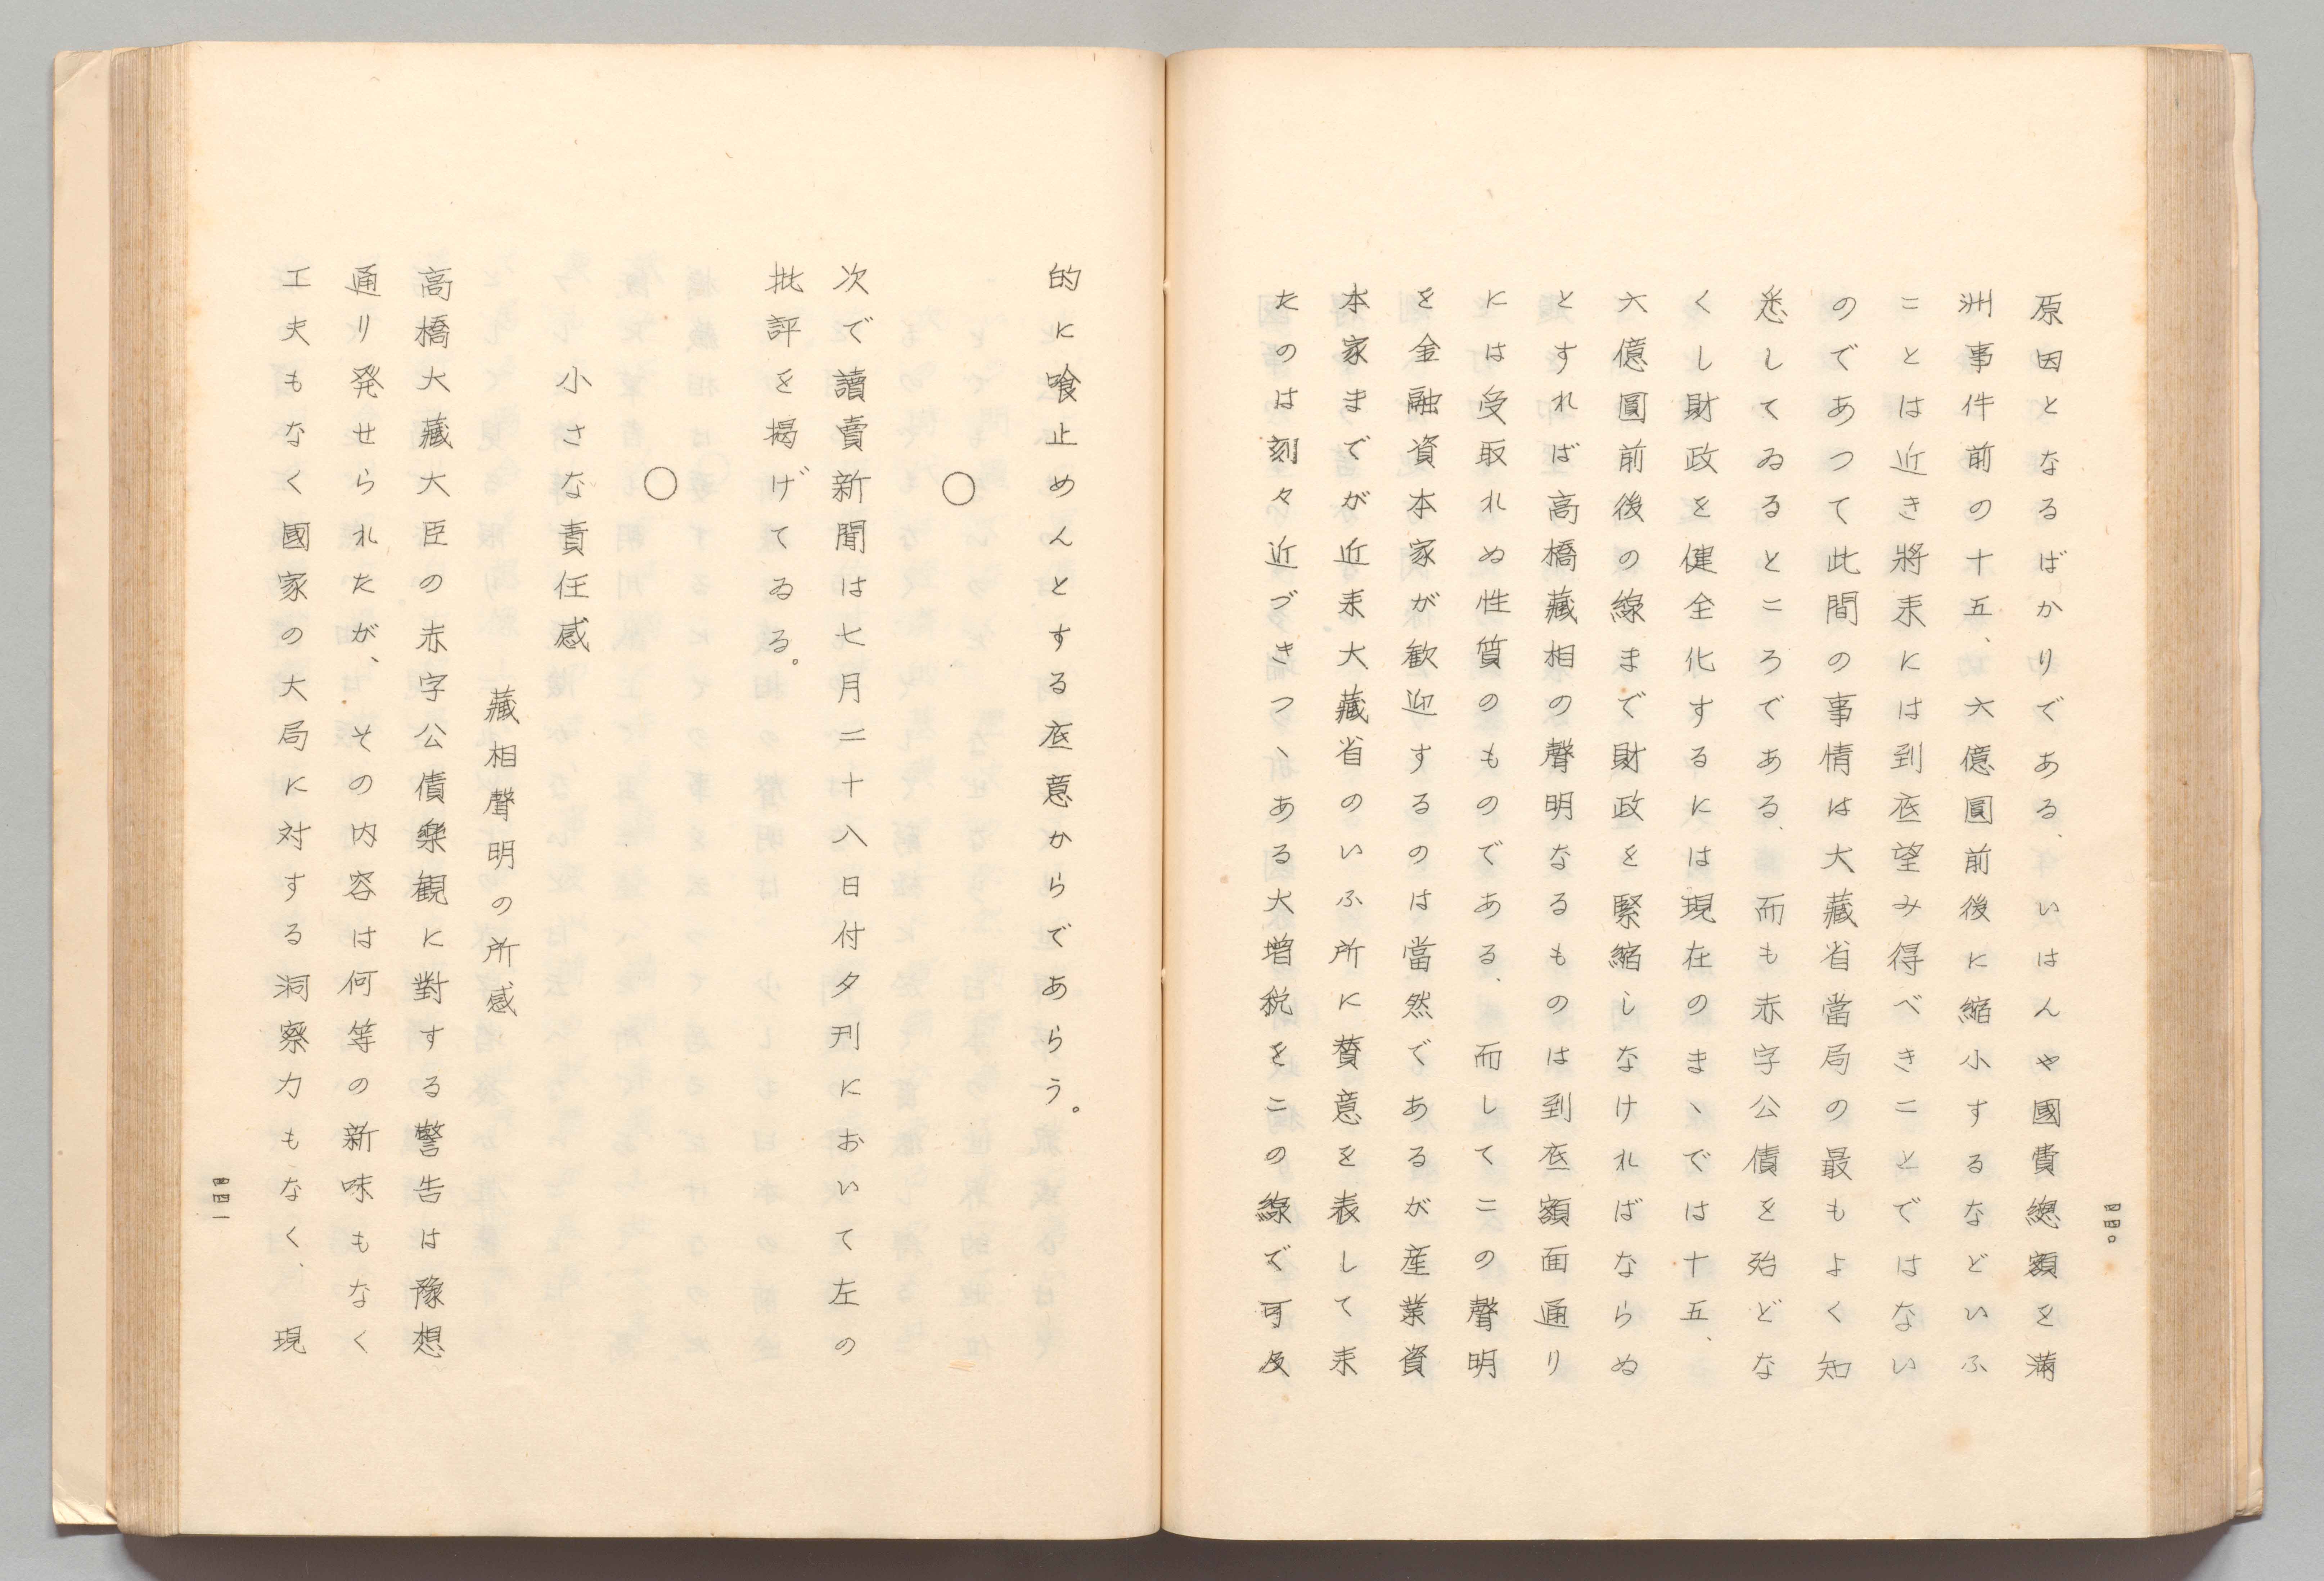 原因となるばかりである、いはんや國費總額を滿
洲事件前の十五、六億圓前後に縮小するなどいふ
ことは近き將来には到底望み得べきことではない
のであつて此間の事情は大藏省當局の最もよく知
悉してゐるところである、而も赤字公債を殆どな
くし財政を健全化するには現在のまゝでは十五、
六億圓前後の線まで財政を緊縮しなければならぬ
とすれば高橋藏相の聲明なるものは到底額面通り
には受取れぬ性質のものである、而してこの聲明
を金融資本家が歓迎するのは當然であるが産業資
本家までが近来大藏省のいふ所に賛意を表して来
たのは刻々近づきつゝある大増税をこの線で可及
四四〇
的に喰止めんとする底意からであらう。
○
次で讀賣新聞は七月二十八日付夕刊において左の
批評を掲げてゐる。
○
小さな責任感
藏相聲明の所感
高橋大藏大臣の赤字公債楽観に對する警告は豫想
通り発せられたが、その内容は何等の新味もなく
工夫もなく國家の大局に対する洞察力もなく、現
四四一